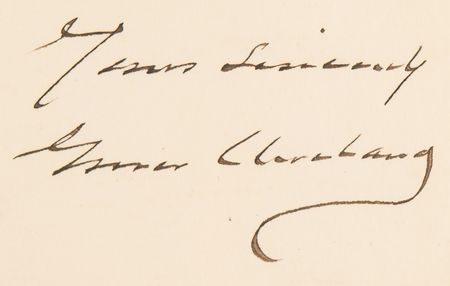 Yours Sincerely
Grover Cleveland